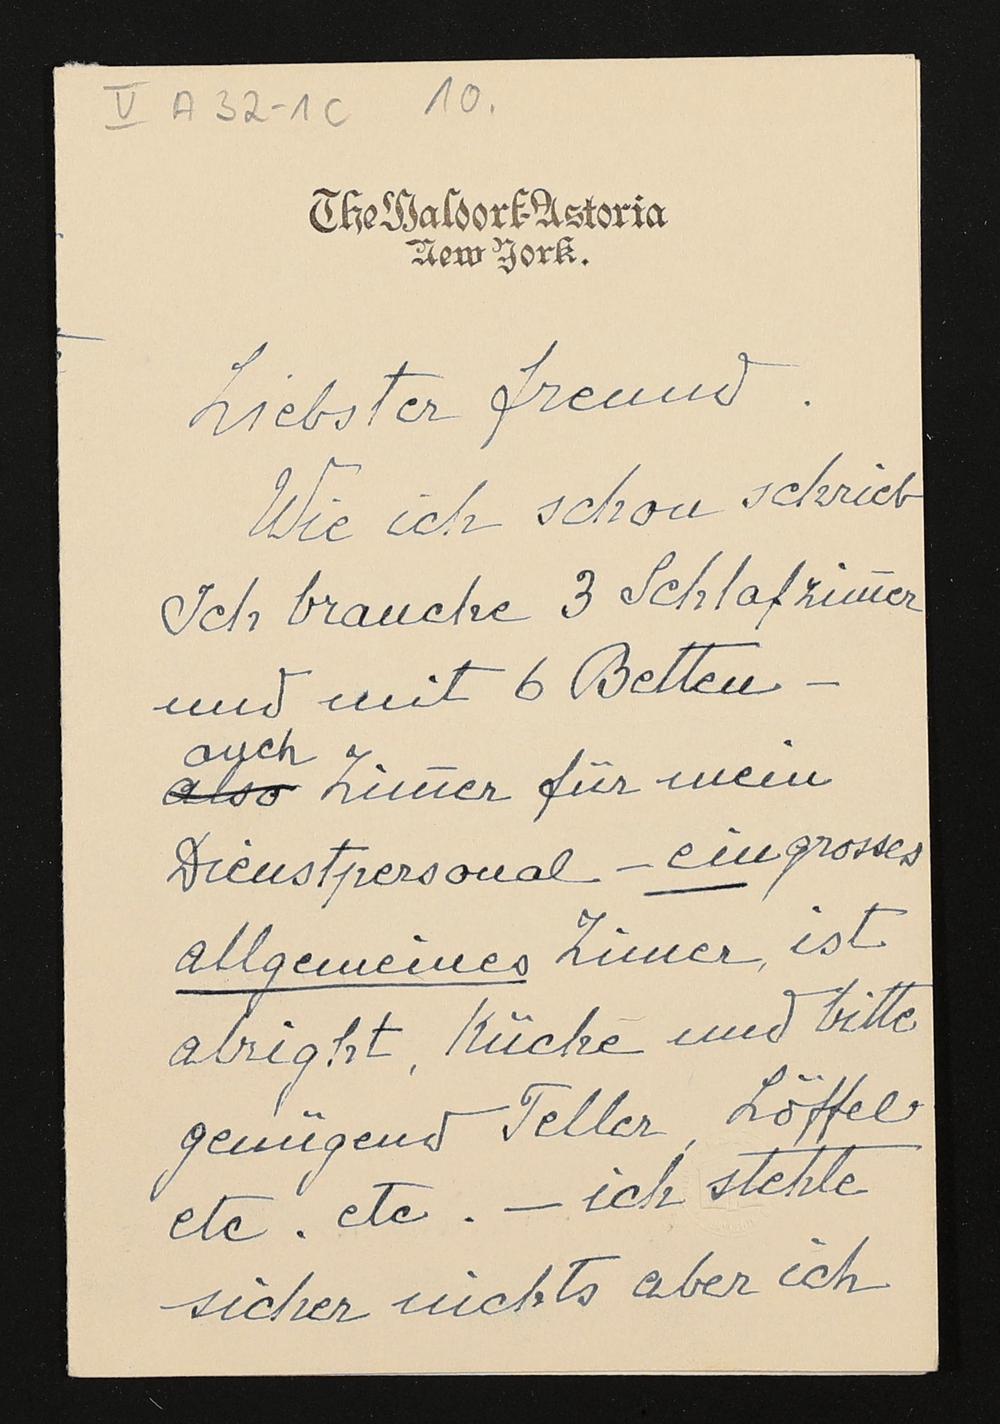 V A 32-1c 10.
The Waldorf-Astoria
New York.
Liebster Freund.
Wie ich schon schrieb
Ich brauche 3 Schlafzim̄er
und mit 6 Betten –
auch
also Zim̄er für mein
Dienstpersonal – ein grosses
allgemeines Zimer, ist
alright, Küche und bitte
genügend Teller, Löffel
etc. etc. – ich stehle
sicher nichts aber ich